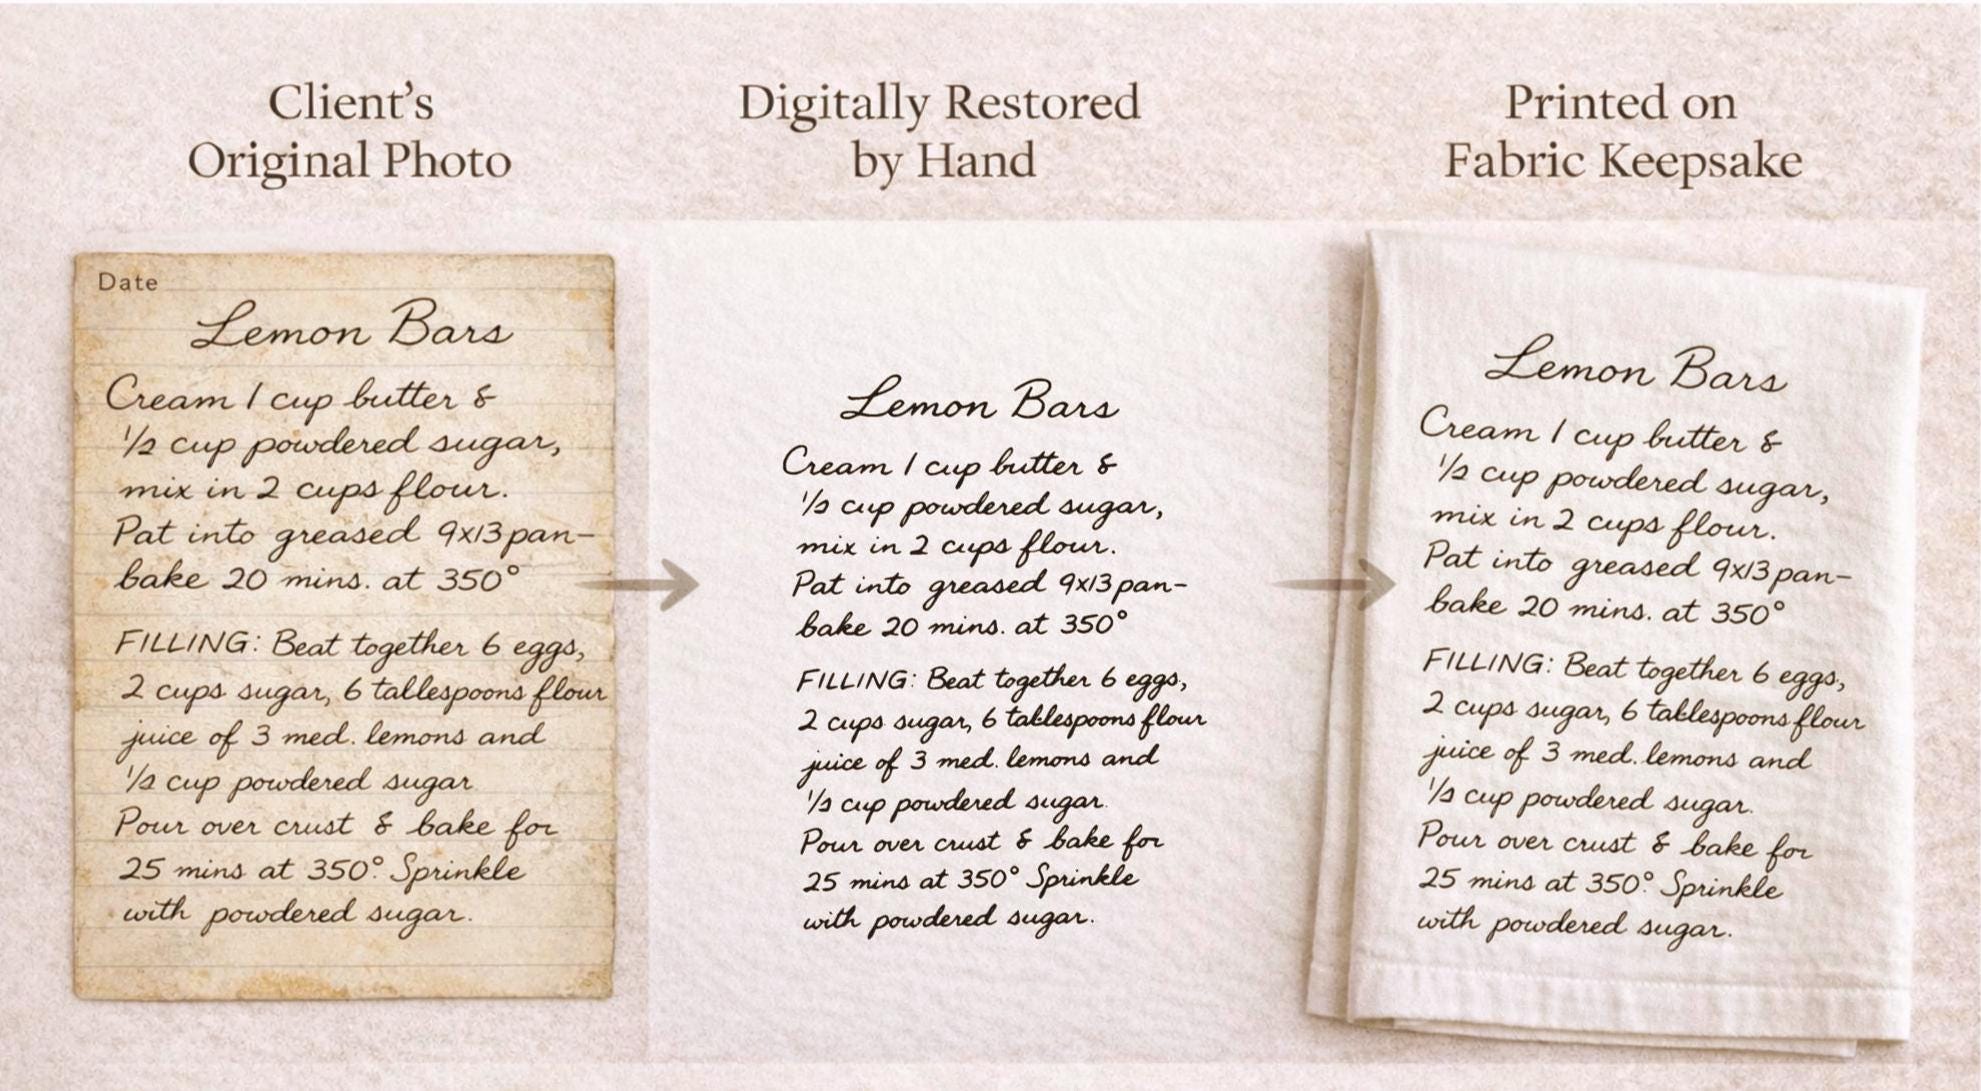 Client's
Original Photo
Digitally Restored
by Hand
Printed on
Fabric Keepsake
Date
Lemon Bars
Cream 1 cup butter &
1/2 cup powdered sugar,
mix in 2 cups flour.
Pat into greased 9x13 pan-
bake 20 mins. at 350°
FILLING: Beat together 6 eggs,
2 cups sugar, 6 tablespoons flour
juice of 3 med. lemons and
1/2 cup powdered sugar
Pour over crust & bake for
25 mins at 350°. Sprinkle
with powdered sugar.
Lemon Bars
Cream 1 cup butter &
1/2 cup powdered sugar,
mix in 2 cups flour.
Pat into greased 9x13 pan-
bake 20 mins. at 350°
FILLING: Beat together 6 eggs,
2 cups sugar, 6 tablespoons flour
juice of 3 med. lemons and
1/2 cup powdered sugar.
Pour over crust & bake for
25 mins at 350° Sprinkle
with powdered sugar.
Lemon Bars
Cream 1 cup butter &
1/2 cup powdered sugar,
mix in 2 cups flour.
Pat into greased 9x13 pan-
bake 20 mins. at 350°
FILLING: Beat together 6 eggs,
2 cups sugar, 6 tablespoons flour
juice of 3 med. lemons and
1/2 cup powdered sugar.
Pour over crust & bake for
25 mins at 350°. Sprinkle
with powdered sugar.